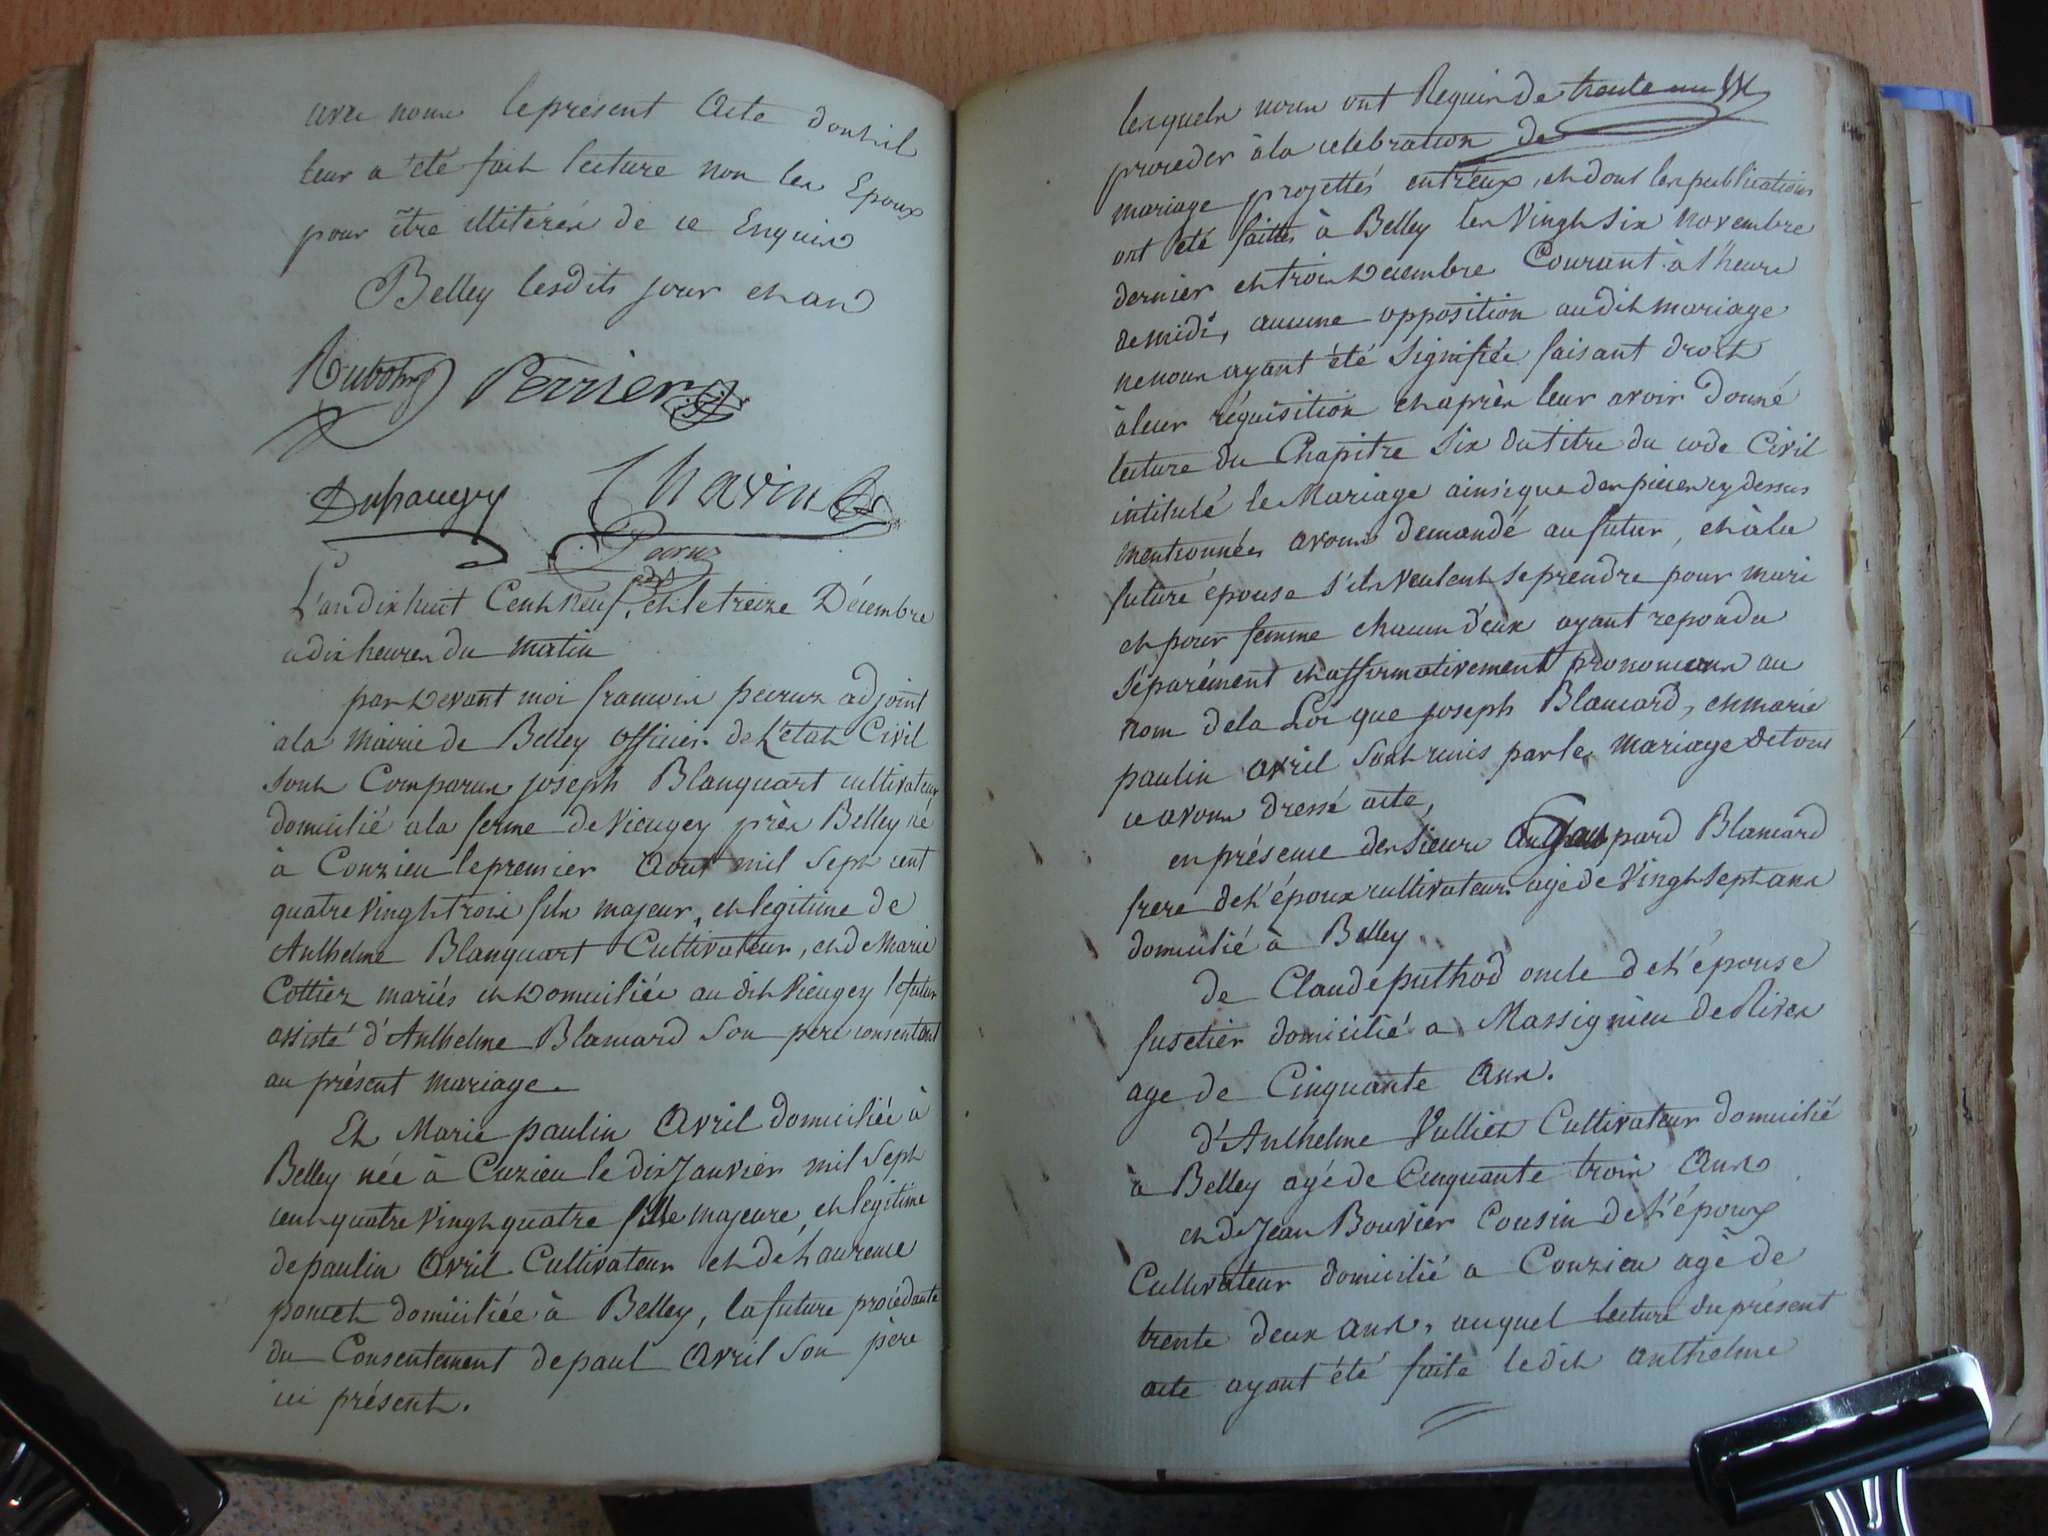 avec nous le présent acte dont il
leur a été fait lecture non les Epoux
pour être illitérés de ce Enquis
Belley lesdits jour et an
Perrier
Chavin
L'an dix huit Cent Neuf, et le treize Décembre
a dix heures du matin
par Devant moi françois peiruz adjoint
à la Mairie de Belley officier de L'etat Civil
sont Comparus joseph Blanquart cultivateur
domicilié a la ferme de Vieugey près Belley né
à Conzieu le premier Aout mil Sept cent
quatre Vingt trois fils majeur, et legitime de
Anthelme Blanquart Cultivateur, et de Marie
Cottier mariés et Domiciliés au dit Vieugey le futur
assisté d'Anthelme Blancard Son père consentant
au présent mariage.
Et Marie paulin Avril domiciliée à
Belley née à Cuzieu le dix Janvier mil Sept
cent quatre Vingt quatre fille majeure, et legitime
de paulin Avril Cultivateur et de Laurence
poncet domiciliée à Belley, la future procédante
du Consentement de paul Avril Son père
ici présent.
lesquels nous ont Requis de trente un
proceder à la celebration de
mariage projettés entreux, et dont les publications
ont été faittes à Belley les Vingt Six Novembre
dernier et trois Décembre Courant à l'heure
de midi, aucune opposition audit mariage
ne nous ayant été signifiée faisant droit
à leur réquisition et après leur avoir donné
lecture du Chapitre Six du titre du code Civil
intitulé le Mariage ainsi que des pièces cy dessus
mentionnées avons demandé au futur, et à la
future épouse s'ils veulent se prendre pour mari
et pour femme chacun d'eux ayant repondu
séparément et affirmativement prononcons au
nom de la Loi que joseph Blancard, et marie
paulin Avril Sont unis par le Mariage de tous
ce avons dressé acte,
en présence des Sieurs Gaspard Blancard
frere de l'époux cultivateur agé de Vingt Sept ans
domicilié à Belley
de Claude puthod oncle de l'épouse
fustier domicilié a Massignieu de Rives
age de Cinquante Ans.
d'Anthelme Vulliet Cultivateur domicilié
à Belley agé de Cinquante trois Ans
et de Jean Bouvier Cousin de l'époux
Cultivateur domicilié a Conzieu agé de
trente deux ans, auquel lecture du présent
acte ayant été faite le dit anthelme